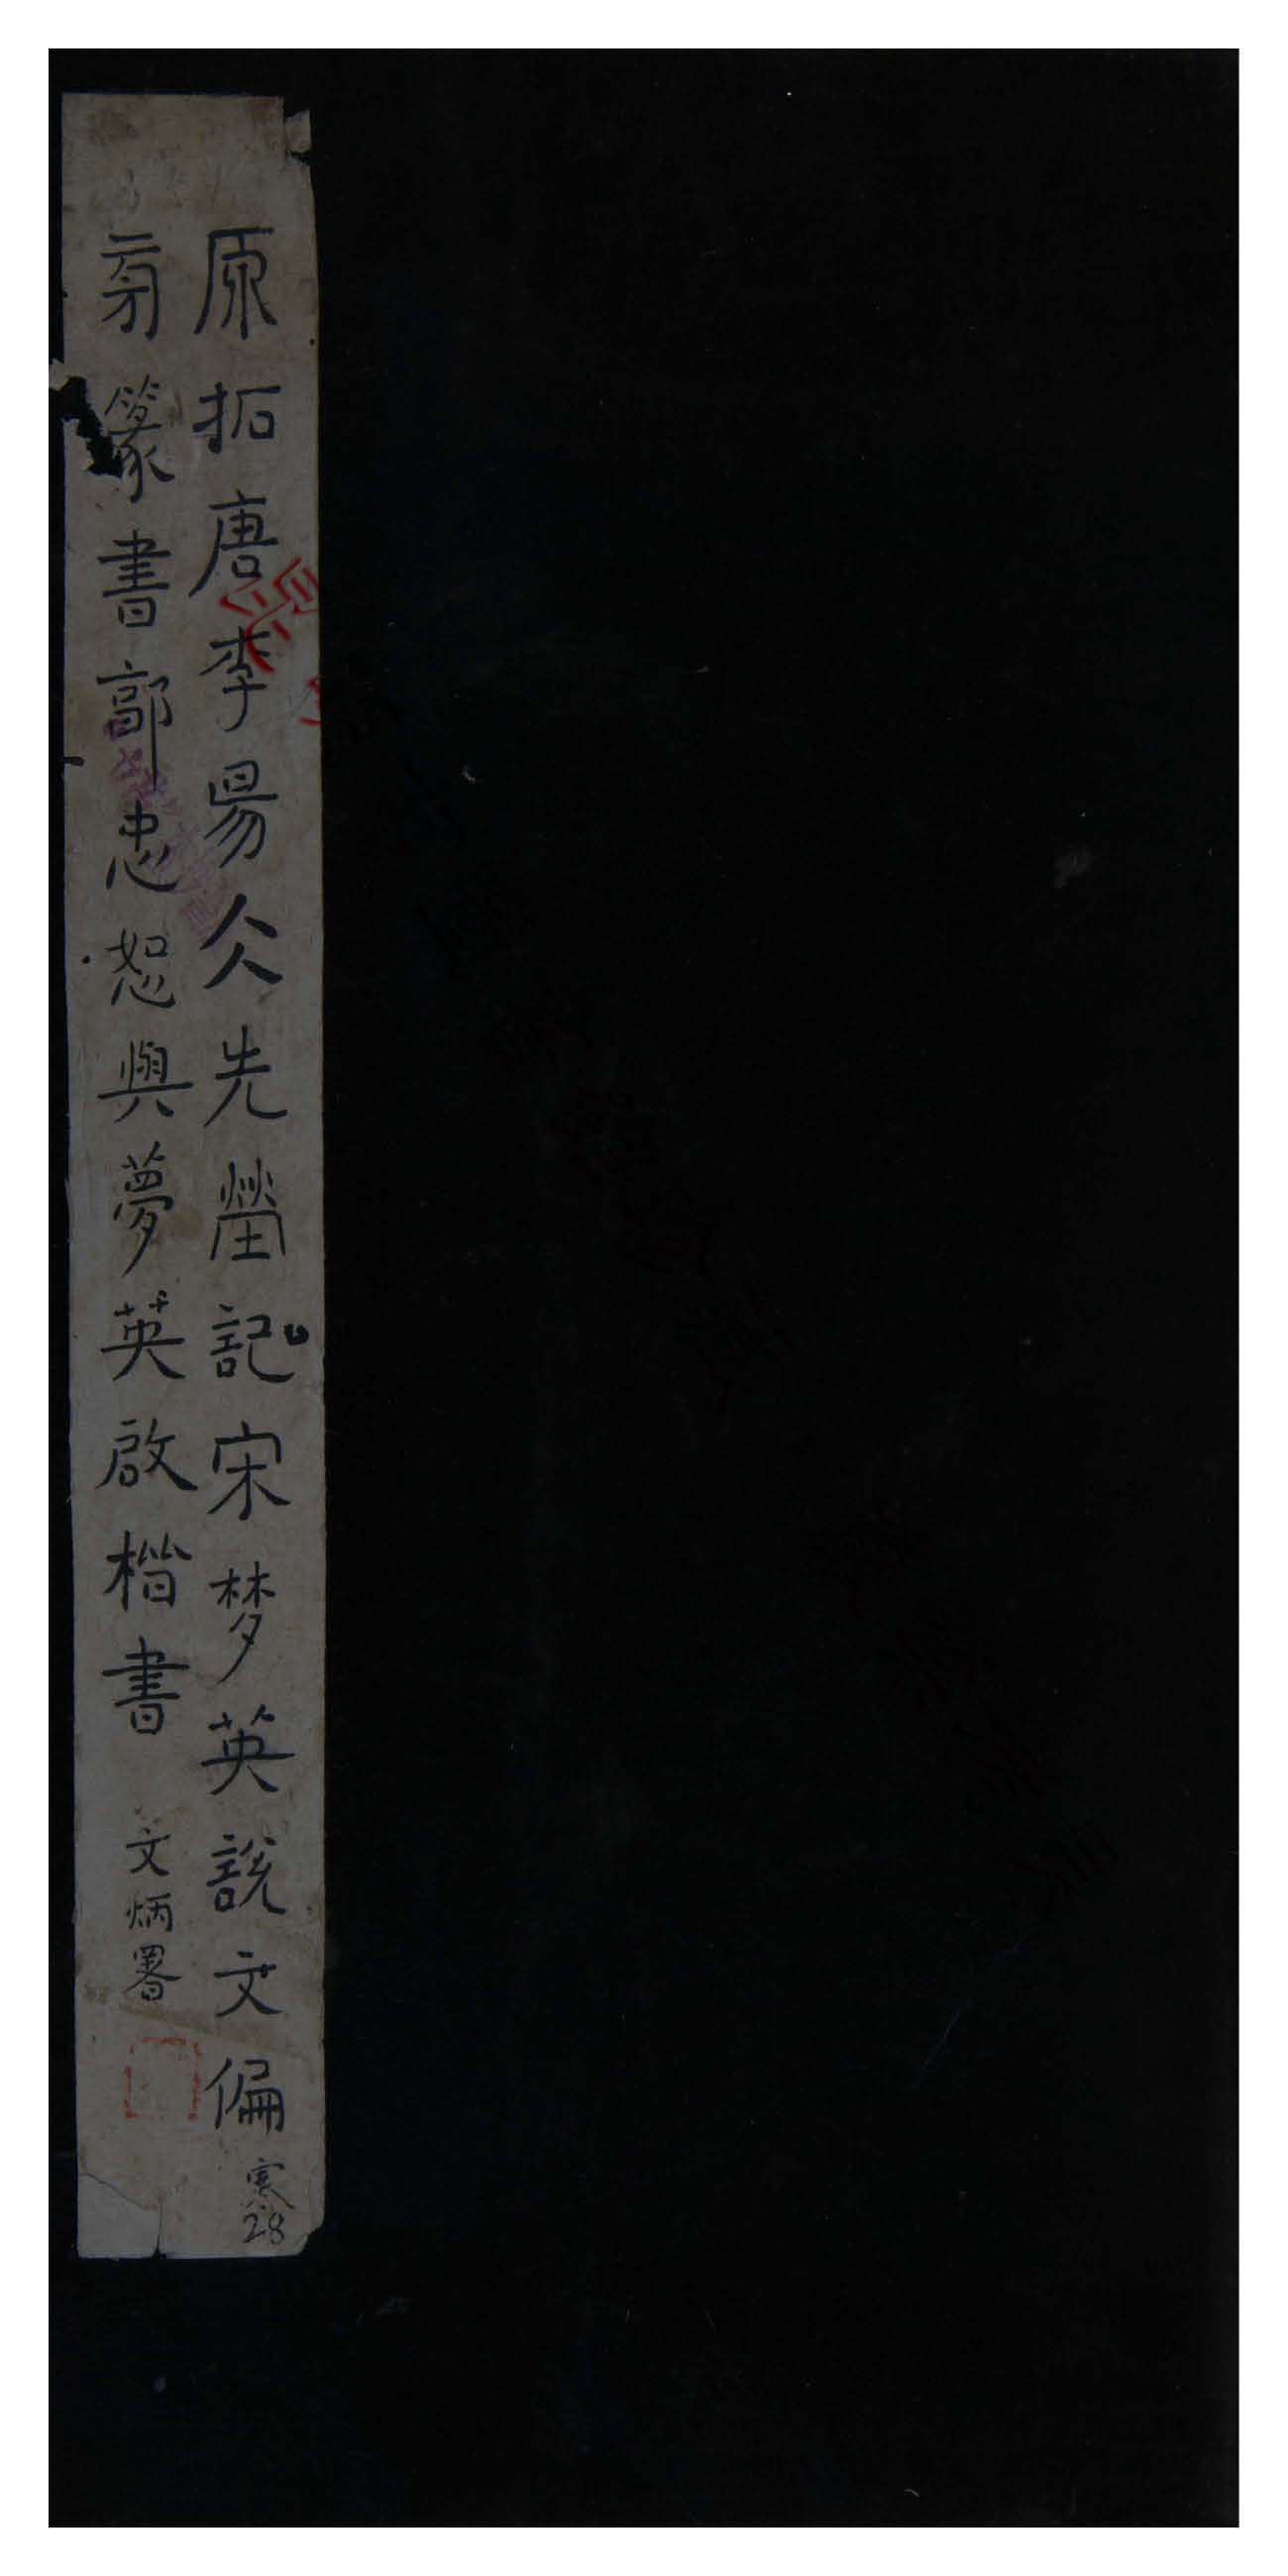 原拓唐李昜仌先塋記宋梦英說文偏
㫄篆書郭忠恕與夢英啟楷書 文炳署
寒
28